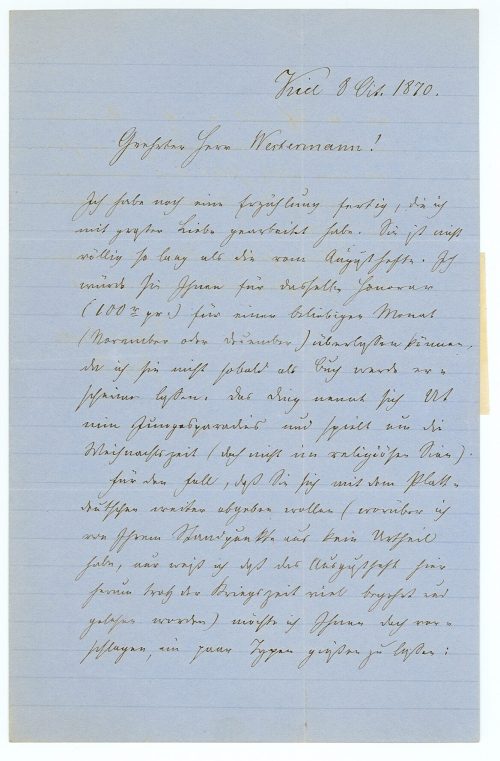 Kiel 8 Oct. 1870.
Geehrter Herr Westermann!
Ich habe noch eine Erzählung fertig, die ich
mit großer Liebe gearbeitet habe. Sie ist nicht
völlig so lang als die vom Augusthefte. Ich
würde sie Ihnen für dasselbe Honorar
(100 pr.) für einen beliebigen Monat
(November oder December) überlassen können,
da ich sie nicht sobald als Buch werde er=
scheinen lassen. Das Ding nennt sich Ut
min Jungsparadies und spielt um die
Weihnachtszeit (doch nicht im religiösen Sinn).
Für den Fall, daß Sie sich mit dem Platt=
deutschen weiter abgeben wollen (worüber ich
von Ihrem Standpunkte aus kein Urtheil
habe, nur weiß ich daß das Augustheft hier
herum trotz der Kriegszeit viel begehrt und
gelesen worden) möchte ich Ihnen doch vor=
schlagen, ein paar Typen gießen zu lassen: